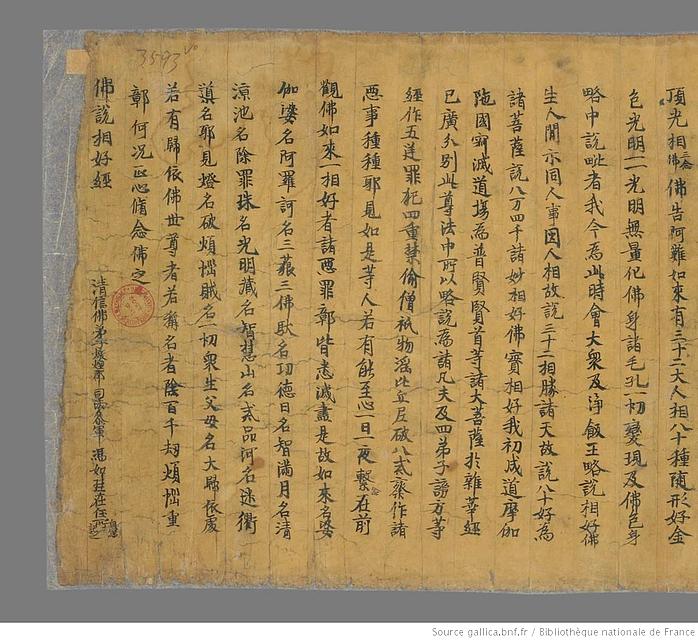 3593 vo
頂光相佛告阿難如來有三十二大人相八十種隨形好金
色光明一一光明無量化佛身諸毛孔一切變現及佛色身
略中說略者我今為此時會大眾及淨飯王略說相好佛
生人間示同人事因人相故說三十二相勝諸天故說八十好為
諸菩薩說八万四千諸妙相好佛實相好我初成道摩伽
陁國寂滅道場為普賢賢首等諸大菩薩於雜華經
已廣分別此尊法中所以略說為諸凡夫及四弟子謗方等
經作五逆罪犯四重禁偷僧祇物淫比丘尼破八戒齋作諸
惡事種種耶見如是等人若有能至心一日一夜繫念在前
觀佛如來一相好者諸惡罪鄣皆悉滅盡是故如來名婆
伽婆名阿羅訶名三藐三佛馱名功德日名智滿月名清
涼池名除罪珠名光明藏名智慧山名戒品河名迷衢
導名耶見燈名破煩惱賊名一切眾生父母名大歸依處
若有歸依佛世尊者若稱名者除百千劫煩惱重
鄣何況正心脩念佛之
佛說相好經
清信佛弟子燉煌郡司法參軍馮如珪在任所
Source gallica.bnf.fr / Bibliothèque nationale de France